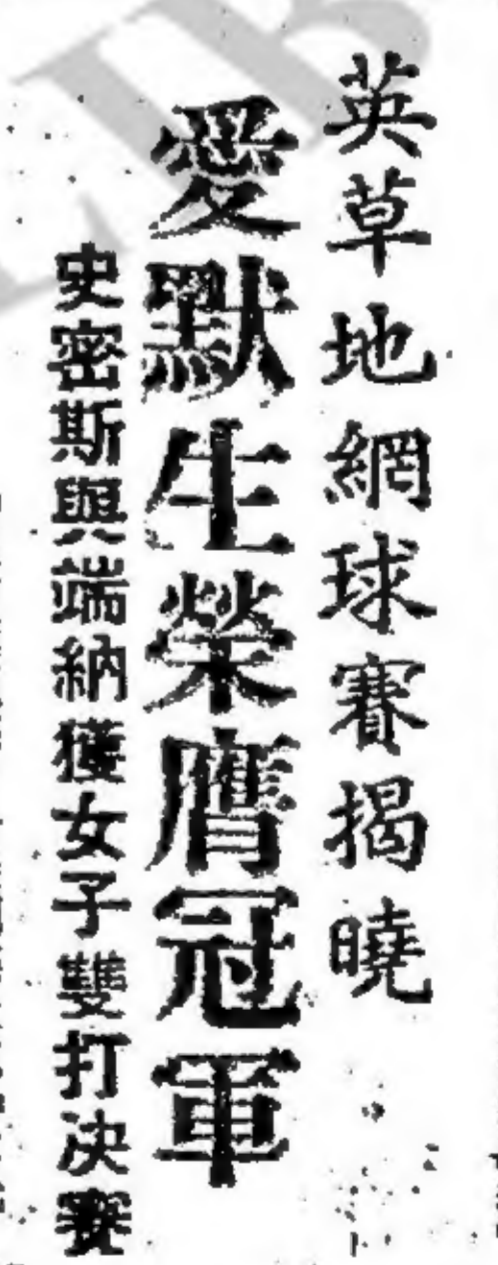 英草地網球賽揭曉
愛默生榮膺冠軍
史密斯與端納獲女子雙打決賽